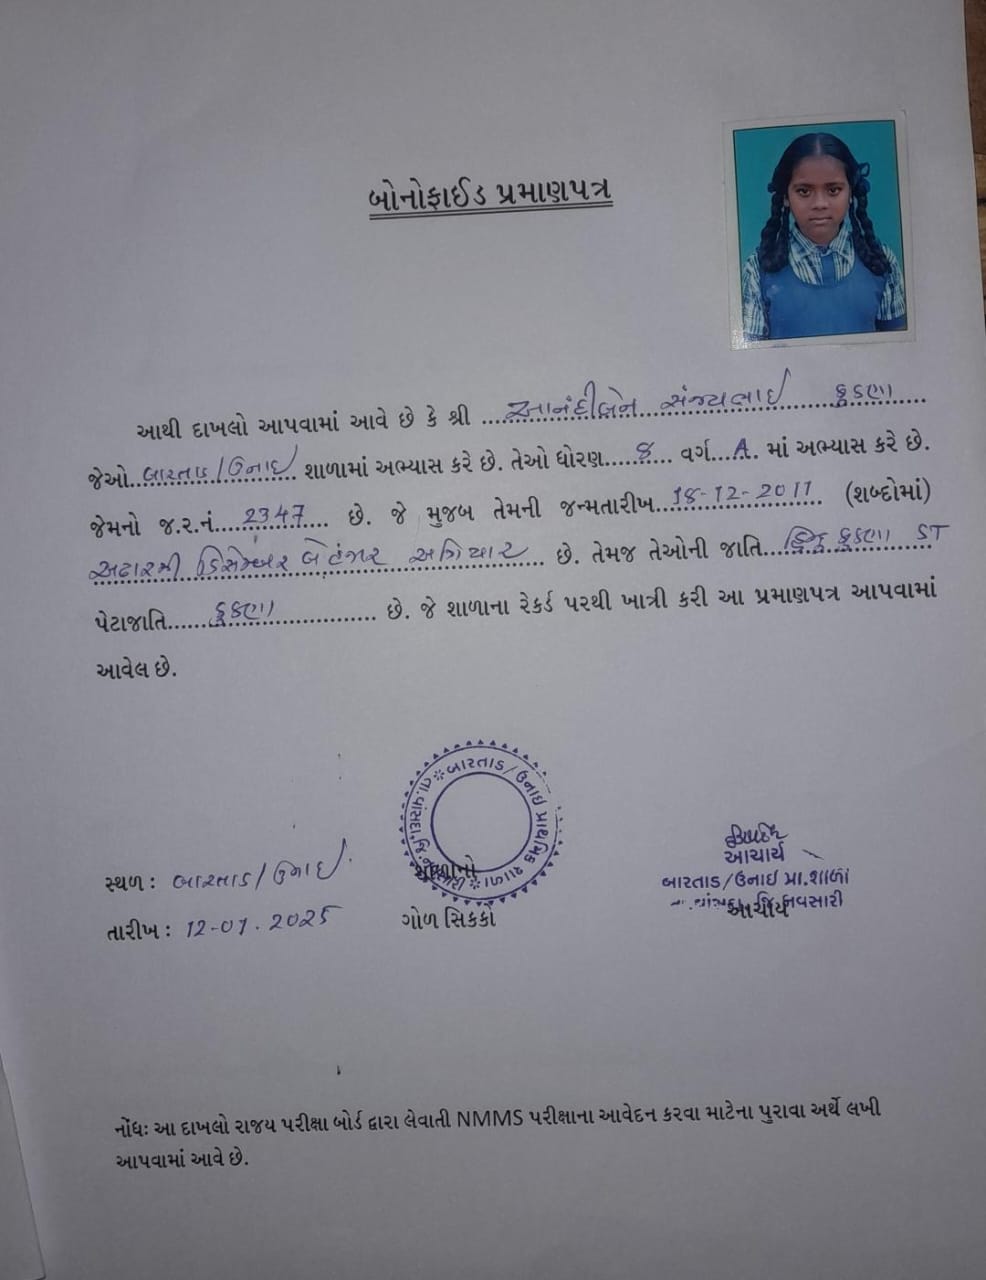 બોનોફાઈડ પ્રમાણપત્ર
આથી દાખલો આપવામાં આવે છે કે શ્રી ...આનંદીબેન...સંજયભાઇ કુકણા......
જેઓ..બારતાડ/ઉનાઇ શાળામાં અભ્યાસ કરે છે. તેઓ ધોરણ.....૮... વર્ગ...A. માં અભ્યાસ કરે છે.
જેમનો જ.ર.નં....2347....... છે. જે મુજબ તેમની જન્મતારીખ...18-12-2011...... (શબ્દોમાં)
અઢારમી ડિસેમ્બર બે હજાર અગિયાર ... છે. તેમજ તેઓની જાતિ...હિન્દુ કુકણા ST
પેટાજાતિ......કુકણા.................. છે. જે શાળાના રેકર્ડ પરથી ખાત્રી કરી આ પ્રમાણપત્ર આપવામાં
આવેલ છે.
બારતાડ/ઉનાઇ પ્રાથમિક શાળા
સ્થળ : બારતાડ/ઉનાઇ
શાળાનો
આચાર્ય
બારતાડ/ઉનાઇ પ્રા.શાળા
જિ.નવસારી
તારીખ : 12-01-2025
ગોળ સિક્કો
આચાર્ય
નોંધઃ આ દાખલો રાજ્ય પરીક્ષા બોર્ડ દ્વારા લેવાતી NMMS પરીક્ષાના આવેદન કરવા માટેના પુરાવા અર્થે લખી
આપવામાં આવે છે.